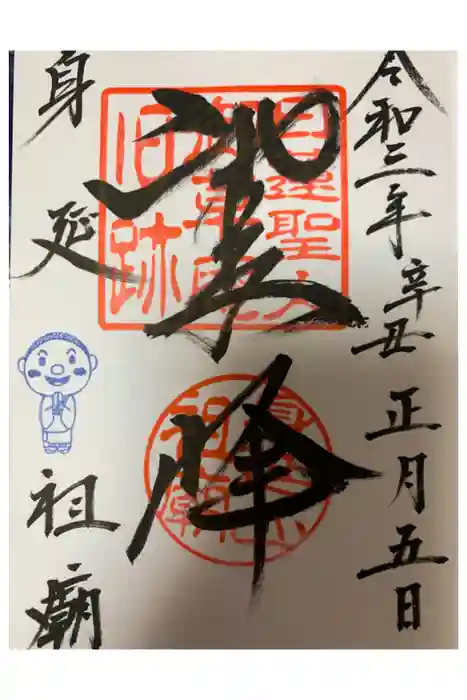 令和三年辛丑正月五日
日蓮聖人
御草庵
旧跡
聖峰
身延山
祖廟
身延
祖廟